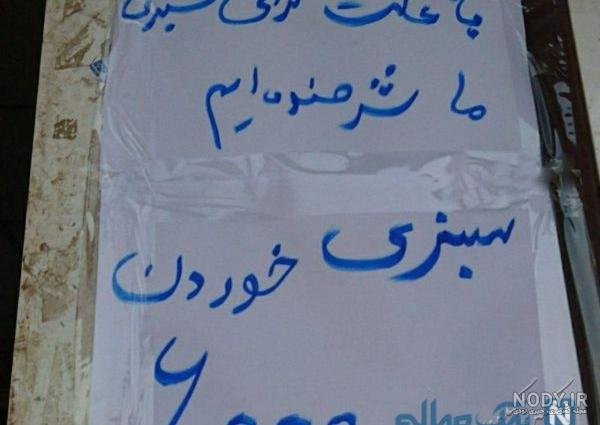 با علت گرانی سبزی
ما شرمنده ایم
سبزی خوردن
۶۰۰۰
NODY.IR